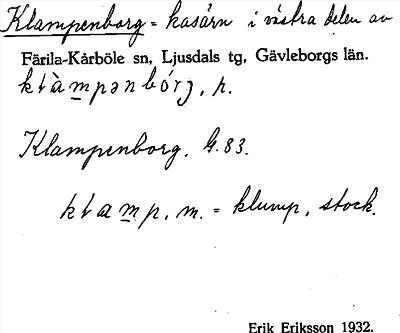 Klampenborg = kasärn i västra delen av
Färila-Kårböle sn, Ljusdals tg, Gävleborgs län.
klàmpənbórj, n.
Klampenborg. G. 83.
klamp, m. = klump, stock.
Erik Eriksson 1932.